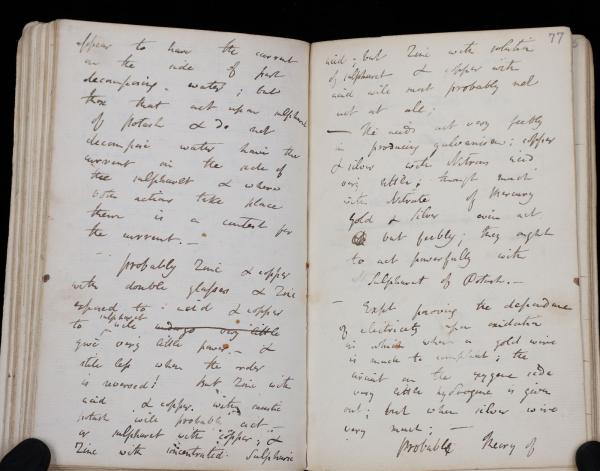 appear to have the current
on the side of pure
decomposing water; but
those that act upon sulphuret
of potash & do not
decompose water have the
current on the side of
the sulphuret & where
both actions take place
there is a contest for
the current. —
probably Zinc & copper
with double glasses & Zinc
exposed to acid & copper
to sulphuret undergo very little
give very little power — &
still less when the order
is reversed! But Zinc with
acid & copper with
potash will probably act —
or sulphuret with copper; &
Zinc with concentrated Sulphuric
77
acid; but Zinc with solution
of sulphuret & copper with
acid will most probably not
act at all;
— The acids act very feebly
in producing galvanism; copper
& silver with Nitrous acid
very little; though much
with Nitrate of Mercury
Gold & silver even act
but feebly; they ought
to act powerfully with
Sulphuret of Potash. —
— Expt proving the dependence
of electricity upon oxidation
is which when a gold wire
is made to compleat; the
circuit on the oxygene side
very little hydrogene is given
out; but when silver wire
very much; —
Probable Theory of